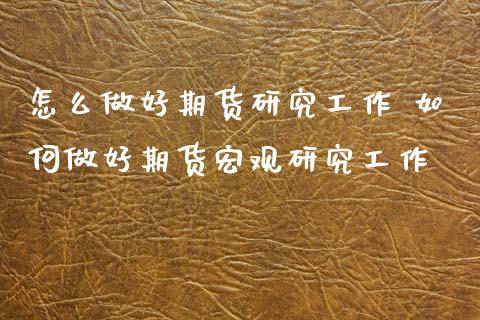 怎么做好期货研究工作 如
何做好期货宏观研究工作